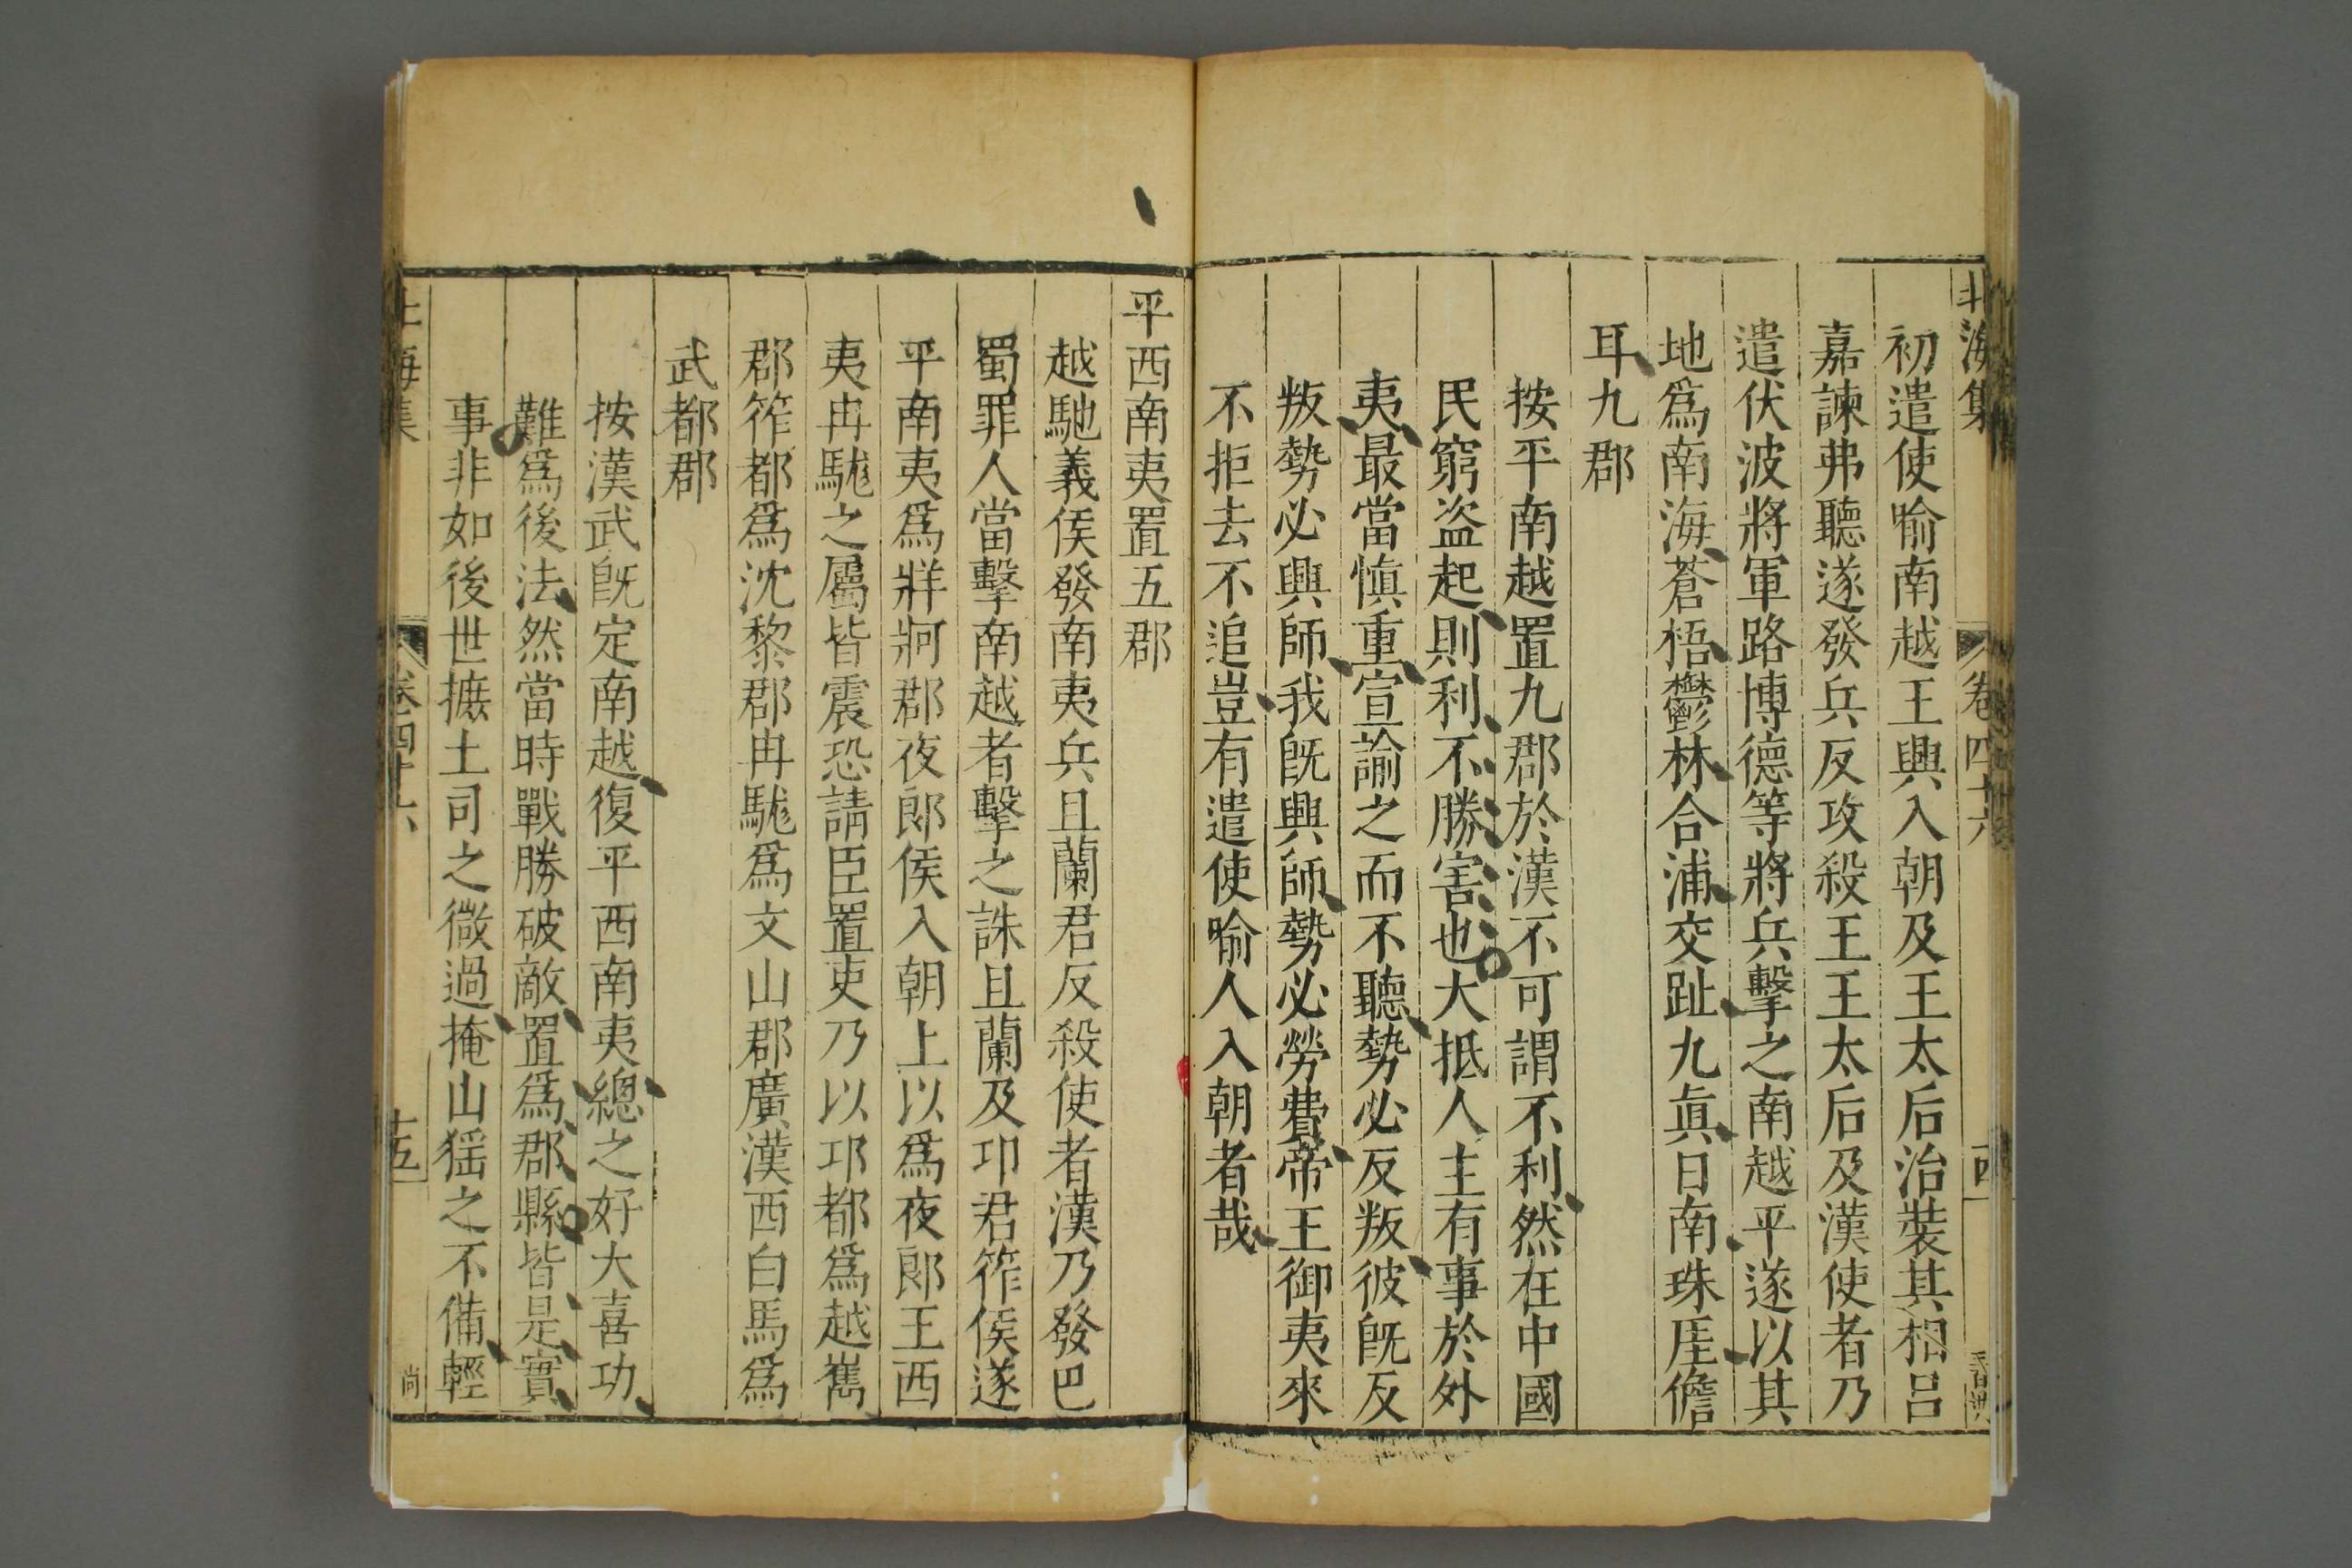 北海集 卷四十六
初遣使喻南越王興入朝及王太后治裝其相呂
嘉諫弗聽遂發兵反攻殺王王太后及漢使者乃
遣伏波將軍路博德等將兵擊之南越平遂以其
地爲南海蒼梧鬱林合浦交趾九眞日南珠厓儋
耳九郡
按平南越置九郡於漢不可謂不利然在中國
民窮盜起則利不勝害也大抵人主有事於外
夷最當慎重宣諭之而不聽勢必反叛彼旣反
叛勢必興師我旣興師勢必勞費帝王御夷來
不拒去不追豈有遣使喻人入朝者哉
平西南夷置五郡
越馳義侯發南夷兵且蘭君反殺使者漢乃發巴
蜀罪人當擊南越者擊之誅且蘭及卭君筰侯遂
平南夷爲牂牁郡夜郎侯入朝上以爲夜郎王西
夷冉駹之屬皆震恐請臣置吏乃以邛都爲越嶲
郡筰都爲沈黎郡冉駹爲文山郡廣漢西白馬爲
武都郡
按漢武旣定南越復平西南夷總之好大喜功
難爲後法然當時戰勝破敵置爲郡縣皆是實
事非如後世摭土司之微過掩山猺之不備輕
北海集 卷四十六 十五 尚